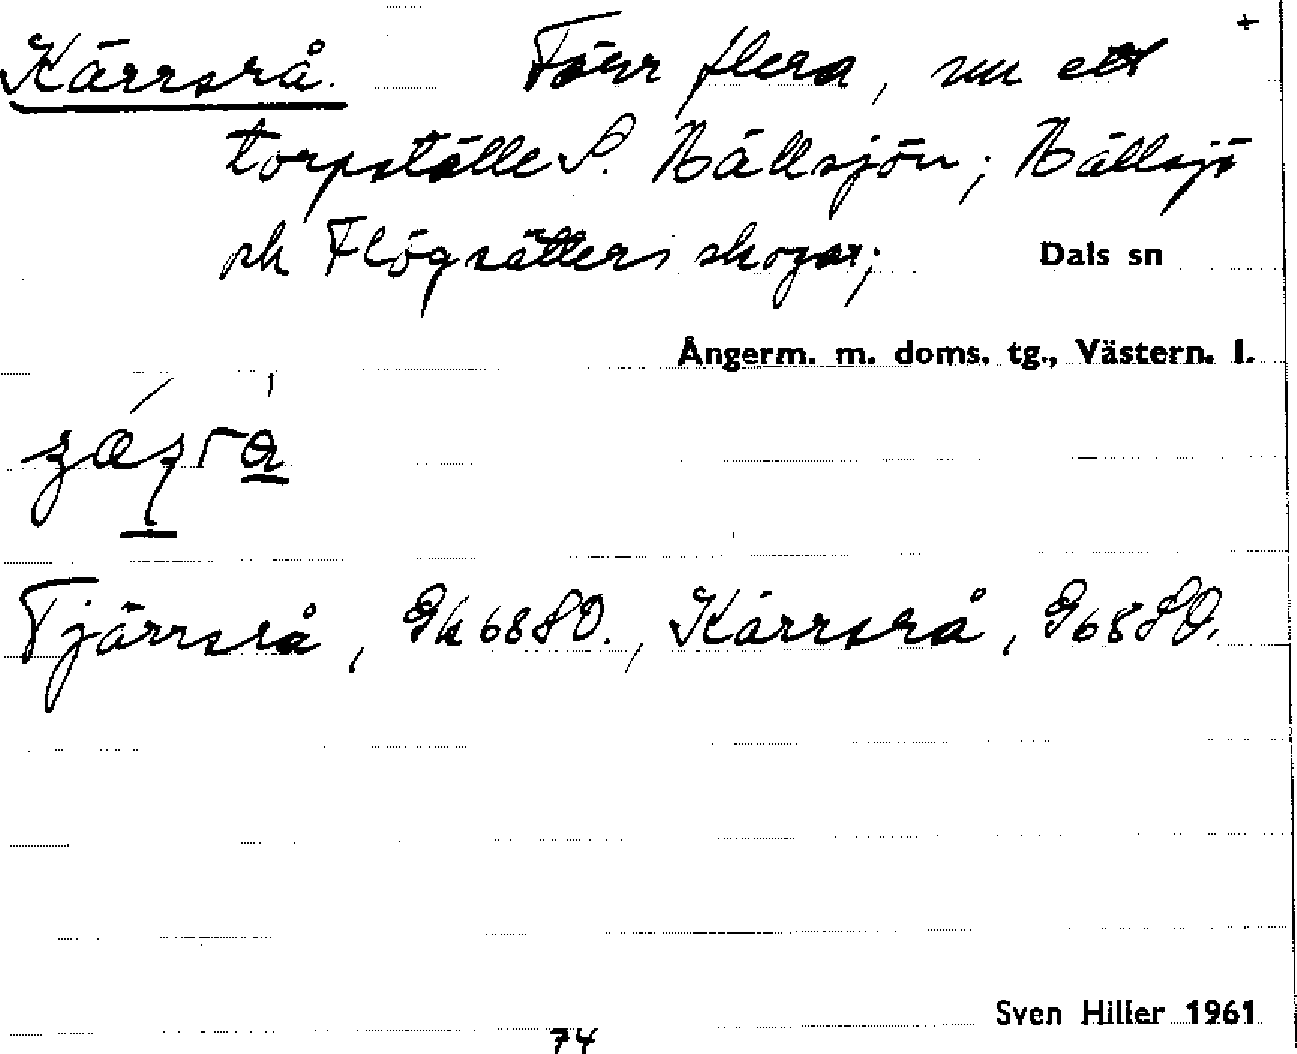 +
Kärrsrå. Förr flera, nu ett
torpställe S. Bällsjön; Bällsjö
ok Flögsätters skogar; Dals sn
Ångerm. m. doms. tg., Västern. l.
Tjärrsrå, Gk 68 SO., Kärrsrå, G 68 SO.
Sven Hiller 1961
74